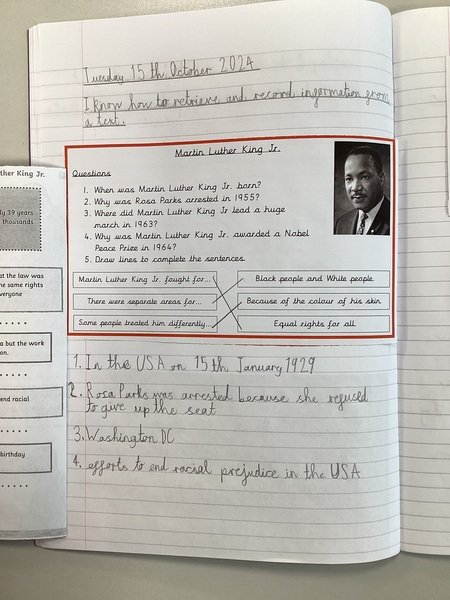 Tuesday 15th October 2024
I know how to retrieve and record information from
a text.
Martin Luther King Jr.
Questions
1. When was Martin Luther King Jr. born?
2. Why was Rosa Parks arrested in 1955?
3. Where did Martin Luther King Jr lead a huge
march in 1963?
4. Why was Martin Luther King Jr. awarded a Nobel
Peace Prize in 1964?
5. Draw lines to complete the sentences.
Martin Luther King Jr. fought for... Black people and White people.
There were separate areas for... Because of the colour of his skin.
Some people treated him differently... Equal rights for all.
1. In the USA on 15th January 1929
2. Rosa Parks was arrested because she refused
to give up the seat
3. Washington DC
4. efforts to end racial prejudice in the USA
ther King Jr.
ly 39 years
thousands
at the law was
he same rights
veryone
a but the work
on.
end racial
birthday